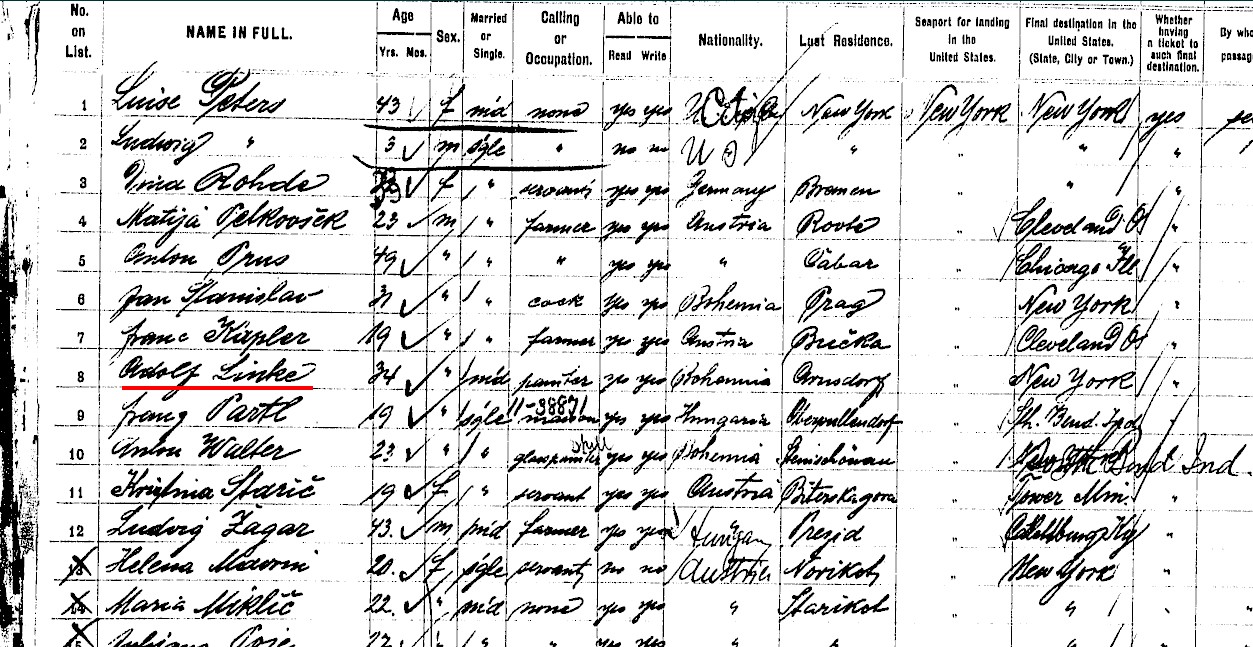 No. on List. NAME IN FULL. Age Yrs. Mos. Sex. Married or Single. Calling or Occupation. Able to Read Write Nationality. Last Residence. Seaport for landing in the United States. Final destination in the United States. (State, City or Town.) Whether having a ticket to such final destination. By who passage
1 Luise Peters 43 f mid none yes yes New York New York New York yes
2 Ludwig " 3 m sgle " no no U S " " " "
3 Rohde f " servant yes yes Germany Bremen " " "
4 Matija Petkovšek 23 m " farmer yes yes Austria Rovte " Cleveland O "
5 Anton Prus 49 " " " yes yes " Čabar " Chicago Ill "
6 Jan Stanislav 31 " " cook yes yes Bohemia Prag " New York "
7 Franc Kapler 19 " " farmer yes yes Austria Bučka " Cleveland O "
8 Adolf Linke 34 " mid painter yes yes Bohemia Arnsdorf " New York "
9 Franz Partl 19 " sgle 11-38871 mason yes yes Hungaria Oberpullendorf " Sth. Bend. Ind "
10 Anton Walter 23 " " glasspainter yes yes Bohemia Steinschönau " Bend Ind.
11 Starič 19 f " servant yes yes Austria " Tower Min. "
12 Ludvig Žagar 43. m mid farmer yes yes Hungary Prezid " Ky "
13 Helena 20. f sgle servant no no Austria " New York "
14 Maria Miklič 22. " mid none yes yes " " " "
15 27 " " " yes yes " " "